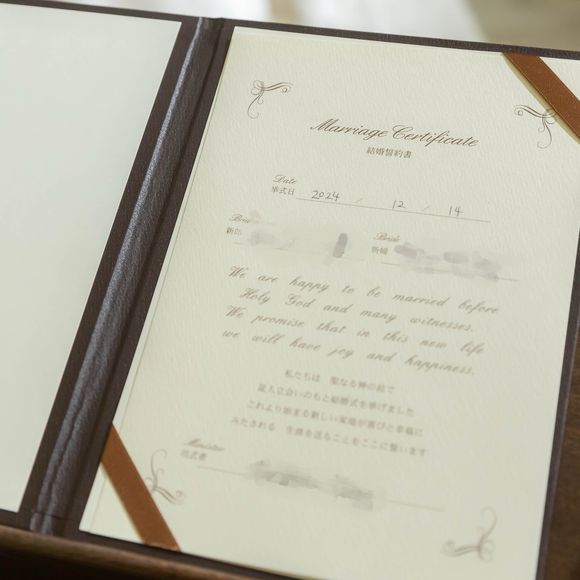 Marriage Certificate
結婚誓約書
Date
挙式日 2024 / 12 / 14
新郎
Bride
新婦
We are happy to be married before
Holy God and many witnesses.
We promise that in this new life
we will have joy and happiness.
私たちは 聖なる神の前で
証人立会いのもと結婚式を挙げました
これより始まる新しい家庭が喜びと幸福に
みたされる 生涯を送ることをここに誓います
Minister
司式者